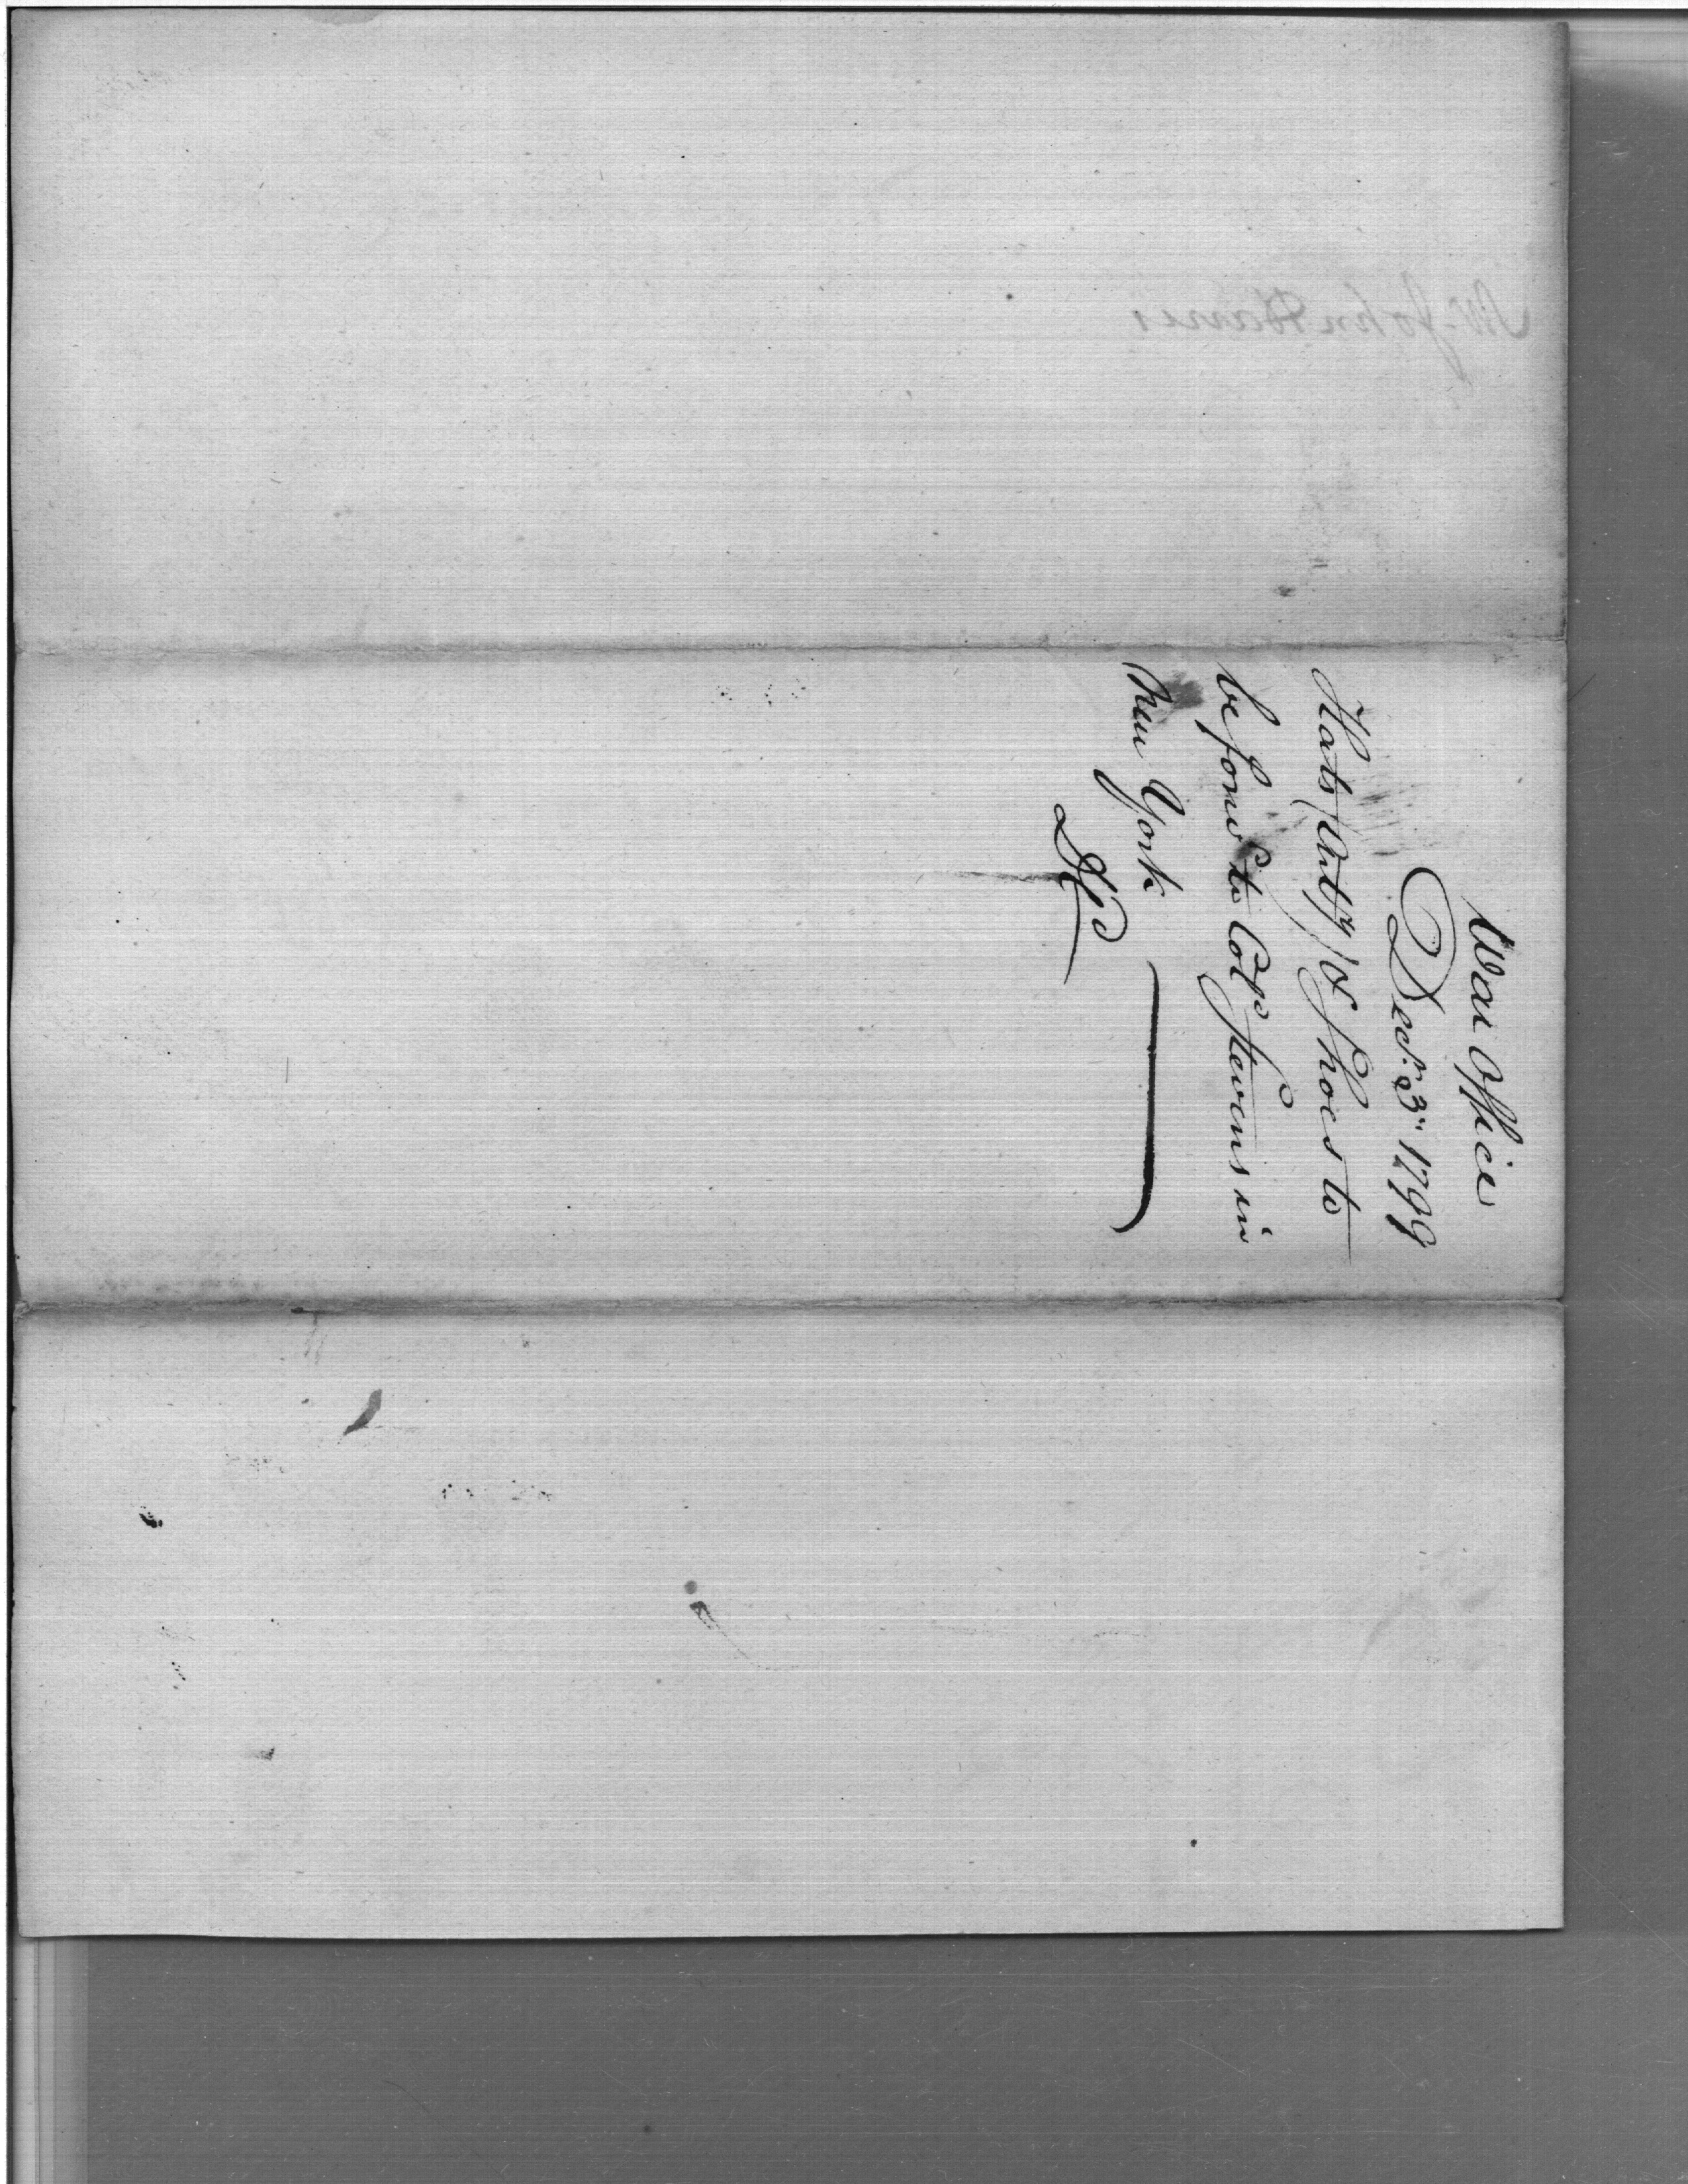 War Office
Decr. 3d. 1799
Hats (Arty) & Shoes to
be forwd. to Colo Stevens in
New York
Mr. John Harris